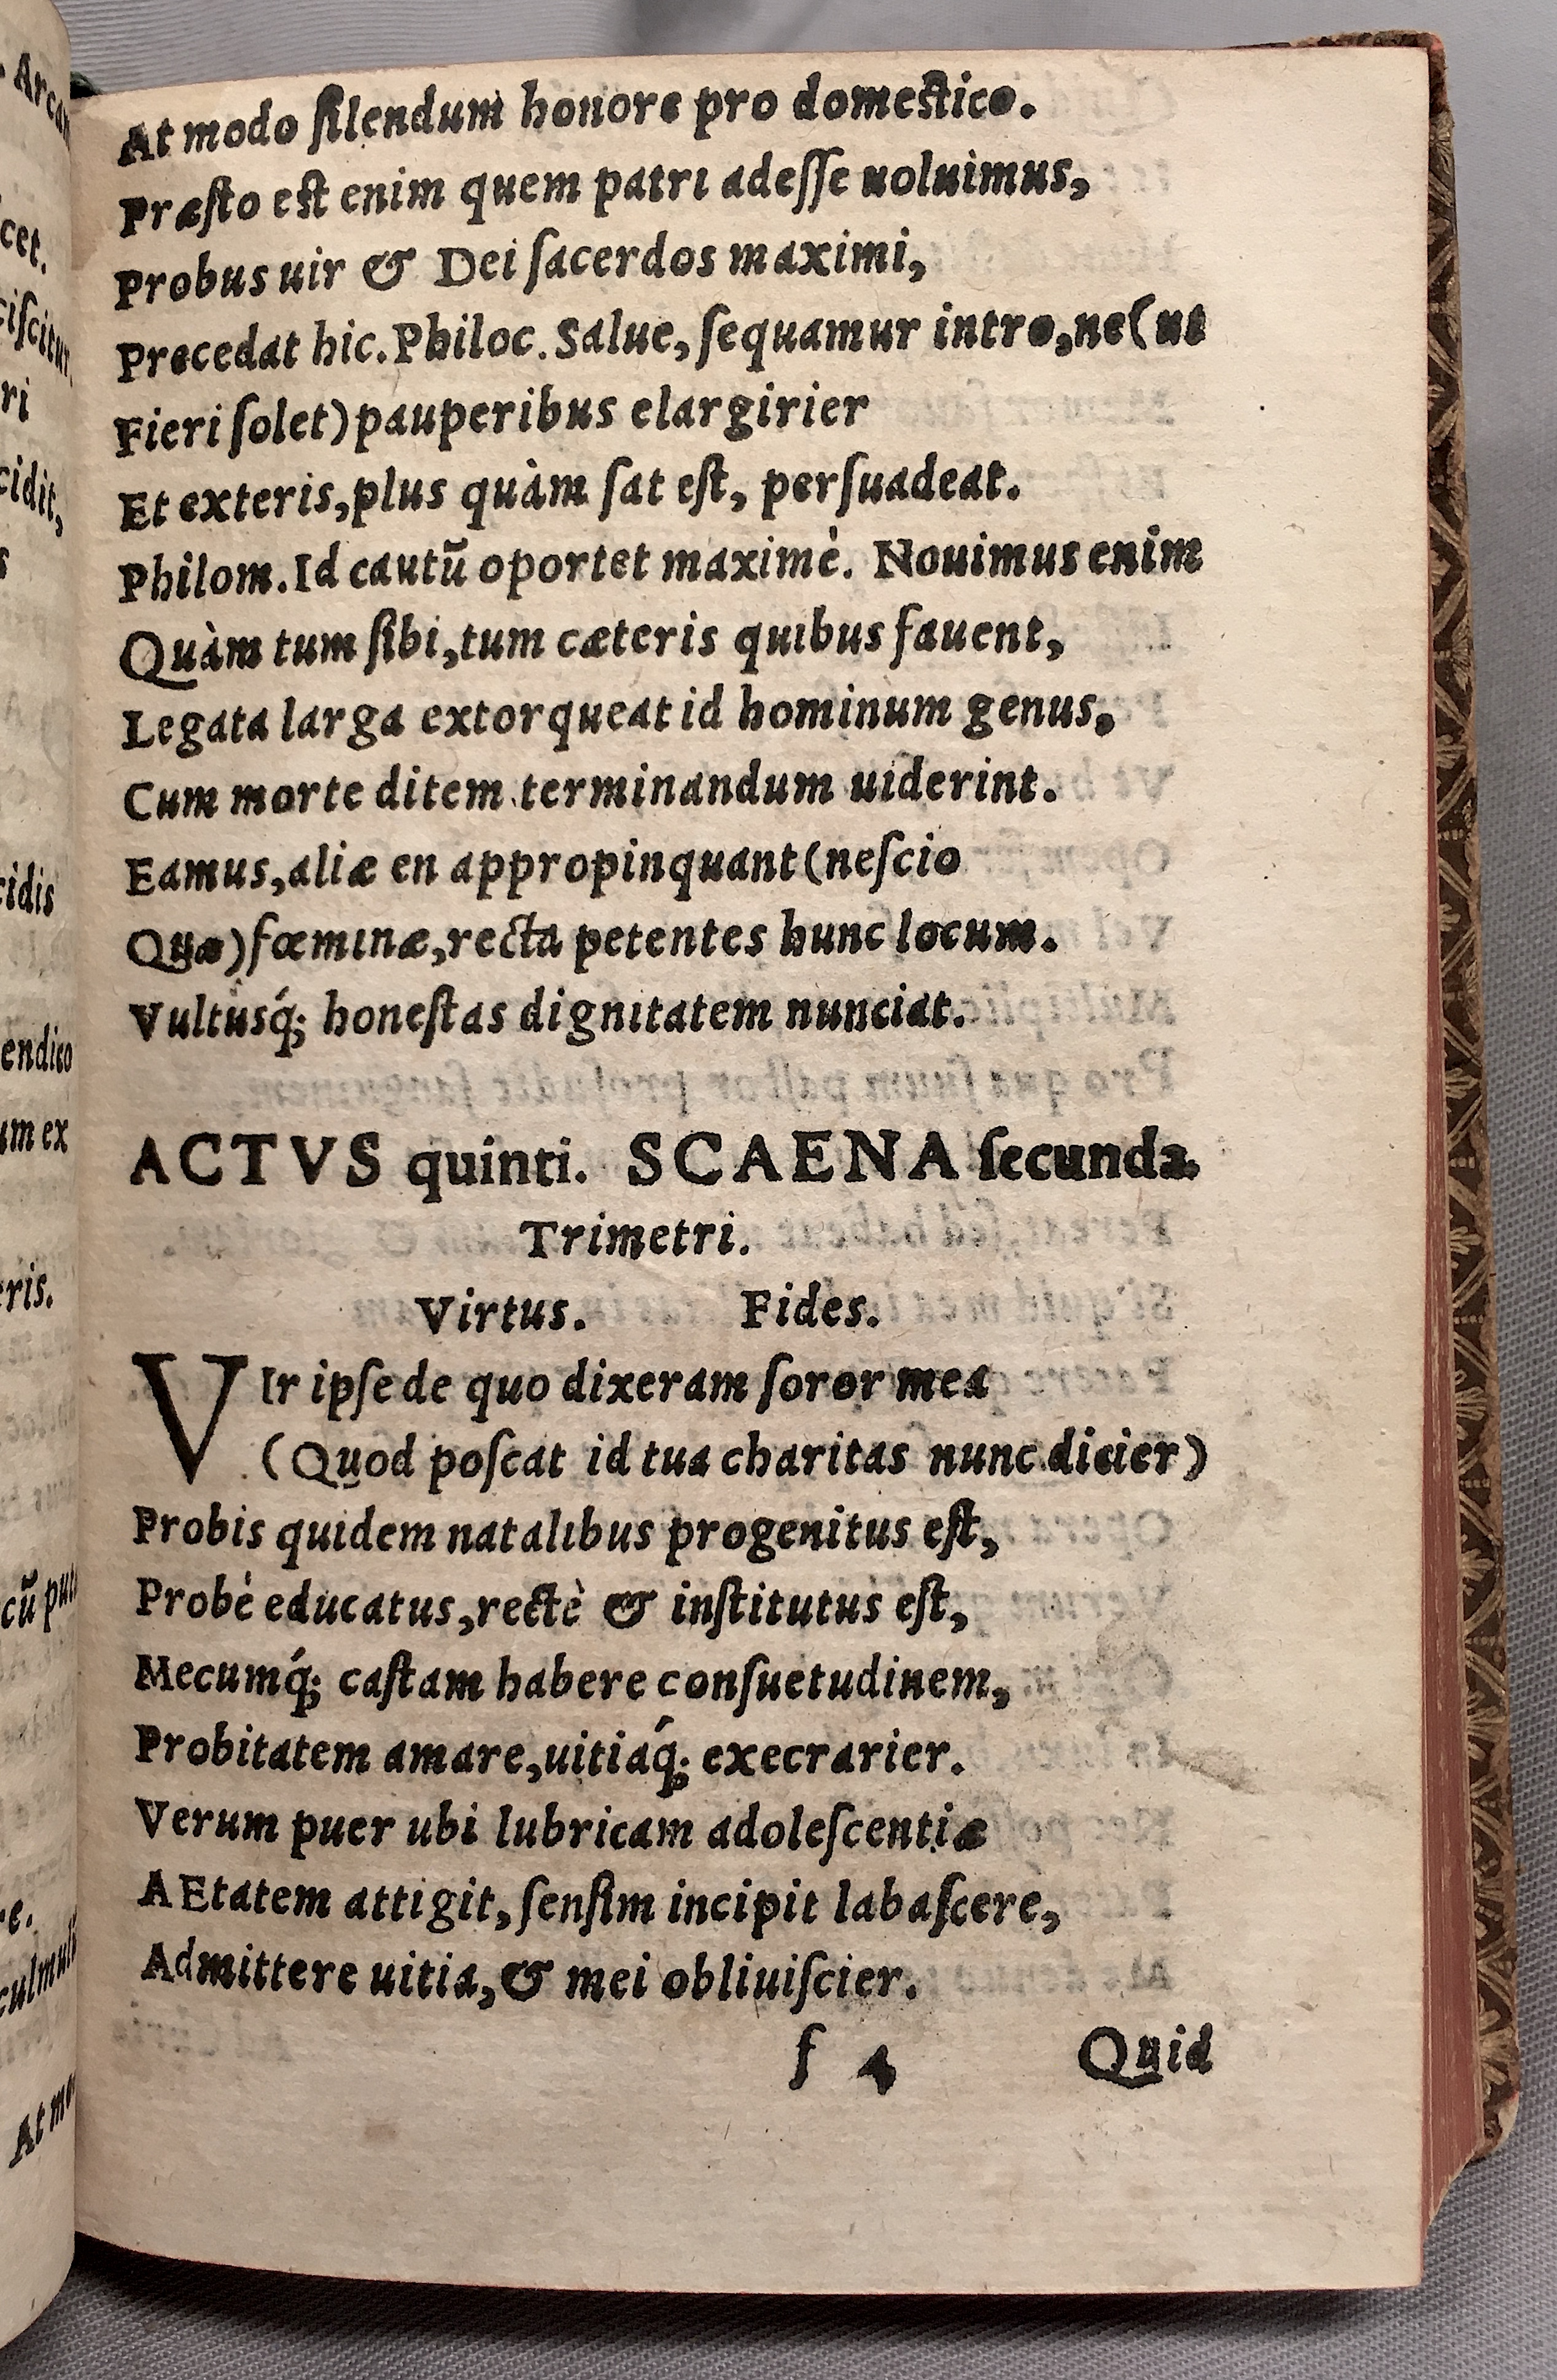 At modo ſilendum honore pro domeſtico.
Præſto eſt enim quem patri adeſſe uoluimus,
Probus uir & Dei ſacerdos maximi,
Precedat hic. Philoc. Salue, ſequamur intro, ne (ut
Fieri ſolet) pauperibus elargirier
Et exteris, plus quàm ſat eſt, perſuadeat.
Philom. Id cautū oportet maximè. Nouimus enim
Quàm tum ſibi, tum cæteris quibus fauent,
Legata larga extorqueat id hominum genus,
Cum morte ditem terminandum uiderint.
Eamus, aliæ en appropinquant (neſcio
Quæ) fœminæ, recta petentes hunc locum.
Vultusq́; honeſtas dignitatem nunciat.
ACTVS quinti. SCAENA ſecunda.
Trimetri.
Virtus. Fides.
VIr ipſe de quo dixeram ſoror mea
(Quod poſcat id tua charitas nunc dicier)
Probis quidem natalibus progenitus eſt,
Probè educatus, rectè & inſtitutus eſt,
Mecumq́; caſtam habere conſuetudinem,
Probitatem amare, uitiaq́; execrarier.
Verum puer ubi lubricam adoleſcentiæ
AEtatem attigit, ſenſim incipit labaſcere,
Admittere uitia, & mei obliuiſcier.
f 4 Quid